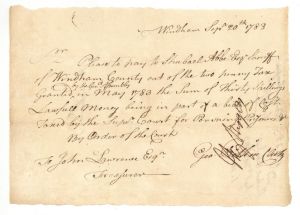 Windham Sepr 20th 1783
Sir
Please to pay to Shubael Abbe Esqr Sheriff
of Windham County out of the two penny Tax
Granted in May 1783 the Sum of Thirty Shillings
Lawfull Money being in part of a bill of Cost
Taxed by the Supr Court for
By Order of the Court
To John Lawrence Esqr
Treasurer
Geo Clerk